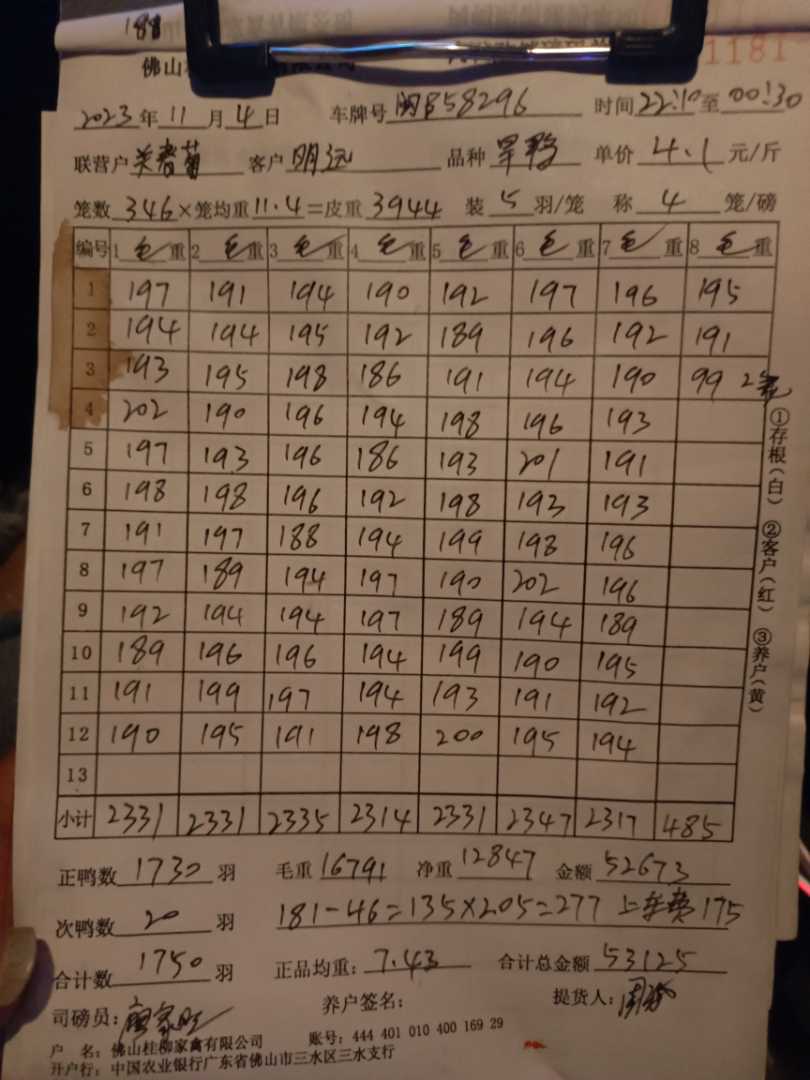 188
佛山
1181
2023年11月4日 车牌号 闽B58296 时间22:10至00:30
联营户 客户 明远 品种 旱鸭 单价 4.1 元/斤
笼数 346×笼均重11.4=皮重 3944 装 5 羽/笼 称 4 笼/磅
编号 1 毛重 2 毛重 3 毛重 4 毛重 5 毛重 6 毛重 7 毛重 8 毛重
1 197 191 194 190 192 197 196 195
2 194 194 195 192 189 196 192 191
3 193 195 198 186 191 194 190 99 2笼
4 202 190 196 194 198 196 193
5 197 193 196 186 193 201 191
6 198 198 196 192 198 193 193
7 191 197 188 194 199 198 196
8 197 189 194 197 190 202 196
9 192 194 194 197 189 194 189
10 189 196 196 194 199 190 195
11 191 199 197 194 193 191 192
12 190 195 191 198 200 195 194
13
小计 2331 2331 2335 2314 2331 2347 2317 485
①存根(白) ②客户(红) ③养户(黄)
正鸭数 1730 羽 毛重 16791 净重 12847 金额 52673
次鸭数 20 羽 181-46=135×2.05=277 上车费 175
合计数 1750 羽 正品均重: 7.43 合计总金额 53125
司磅员: 养户签名: 提货人:
户 名: 佛山桂柳家禽有限公司 账号: 444 401 010 400 169 29
开户行: 中国农业银行广东省佛山市三水区三水支行